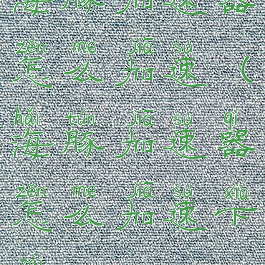 海豚加速器
zěn me jiā sù
怎么加速（
hǎi tún jiā sù qì
海豚加速器
zěn me jiā sù kǎ
怎么加速卡